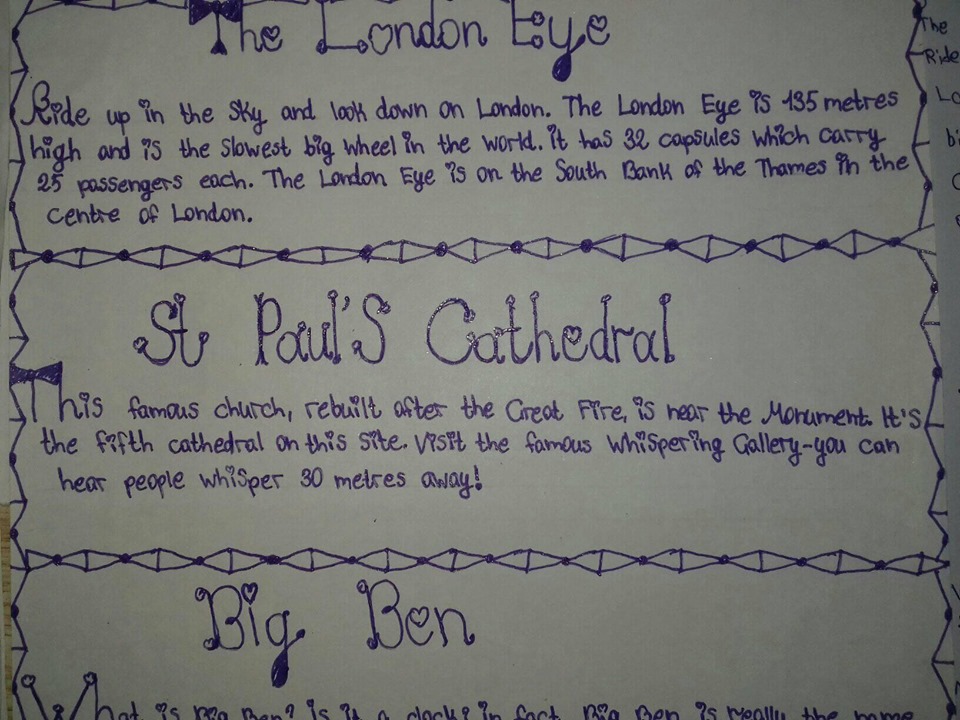 The London Eye
Ride up in the sky and look down on London. The London Eye is 135 metres
high and is the slowest big wheel in the world. it has 32 capsules which carry
25 passengers each. The London Eye is on the South Bank of the Thames in the
centre of London.
St Paul's Cathedral
This famous church, rebuilt after the Great Fire, is near the Monument. It's
the fifth cathedral on this site. Visit the famous Whispering Gallery-you can
hear people whisper 30 metres away!
Big Ben
What is Big Ben? is it a clock? in fact Big Ben is really the name
The
Ride
Lo
bi